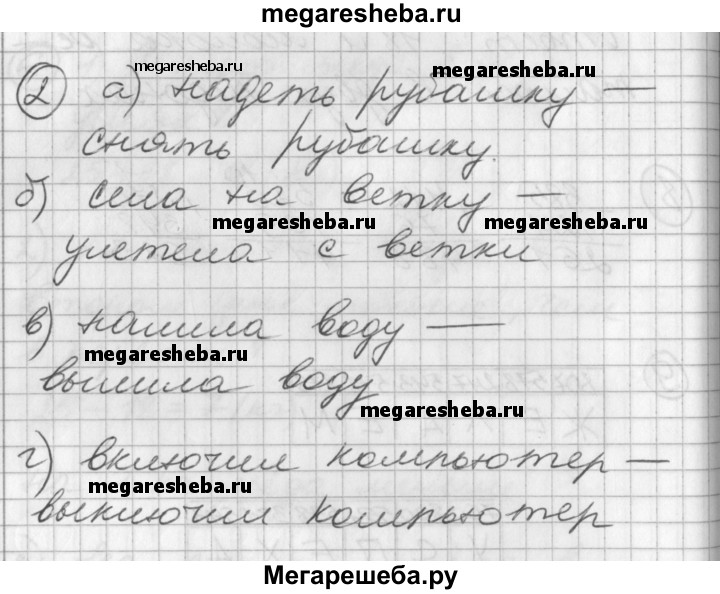 megaresheba.ru
megaresheba.ru
megaresheba.ru
② а) надеть рубашку —
снять рубашку.
б) села на ветку —
megaresheba.ru megaresheba.ru
улетела с ветки
в) налила воду —
megaresheba.ru
вылила воду
megaresheba.ru
г) включил компьютер —
megaresheba.ru
выключил компьютер
Мегарешеба.ру